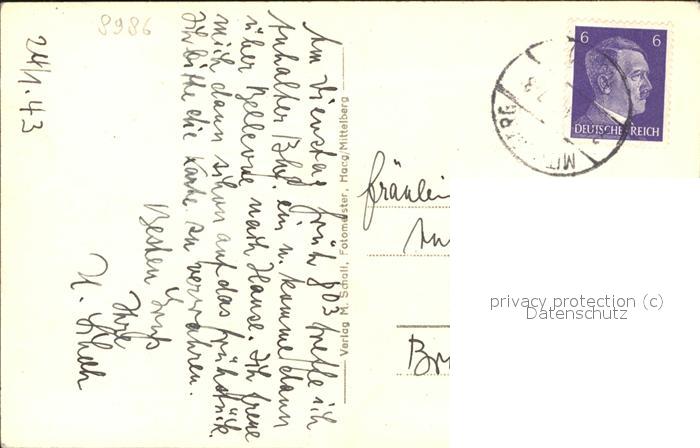 8986
24/1.43
Am Dienstag früh 803 treffe ich
Anhalter Bhf. ein u. komme dann
über Bellevue nach Hause. Ich freue
mich dann schon auf das Frühstück.
Ich bitte die Karte zu verwahren.
Besten Gruß
Ihr
H.
Verlag M. Schall, Fotomeister, Hacg/Mittelberg
6 6
DEUTSCHES REICH
MITT
Fräulein
privacy protection (c)
Datenschutz